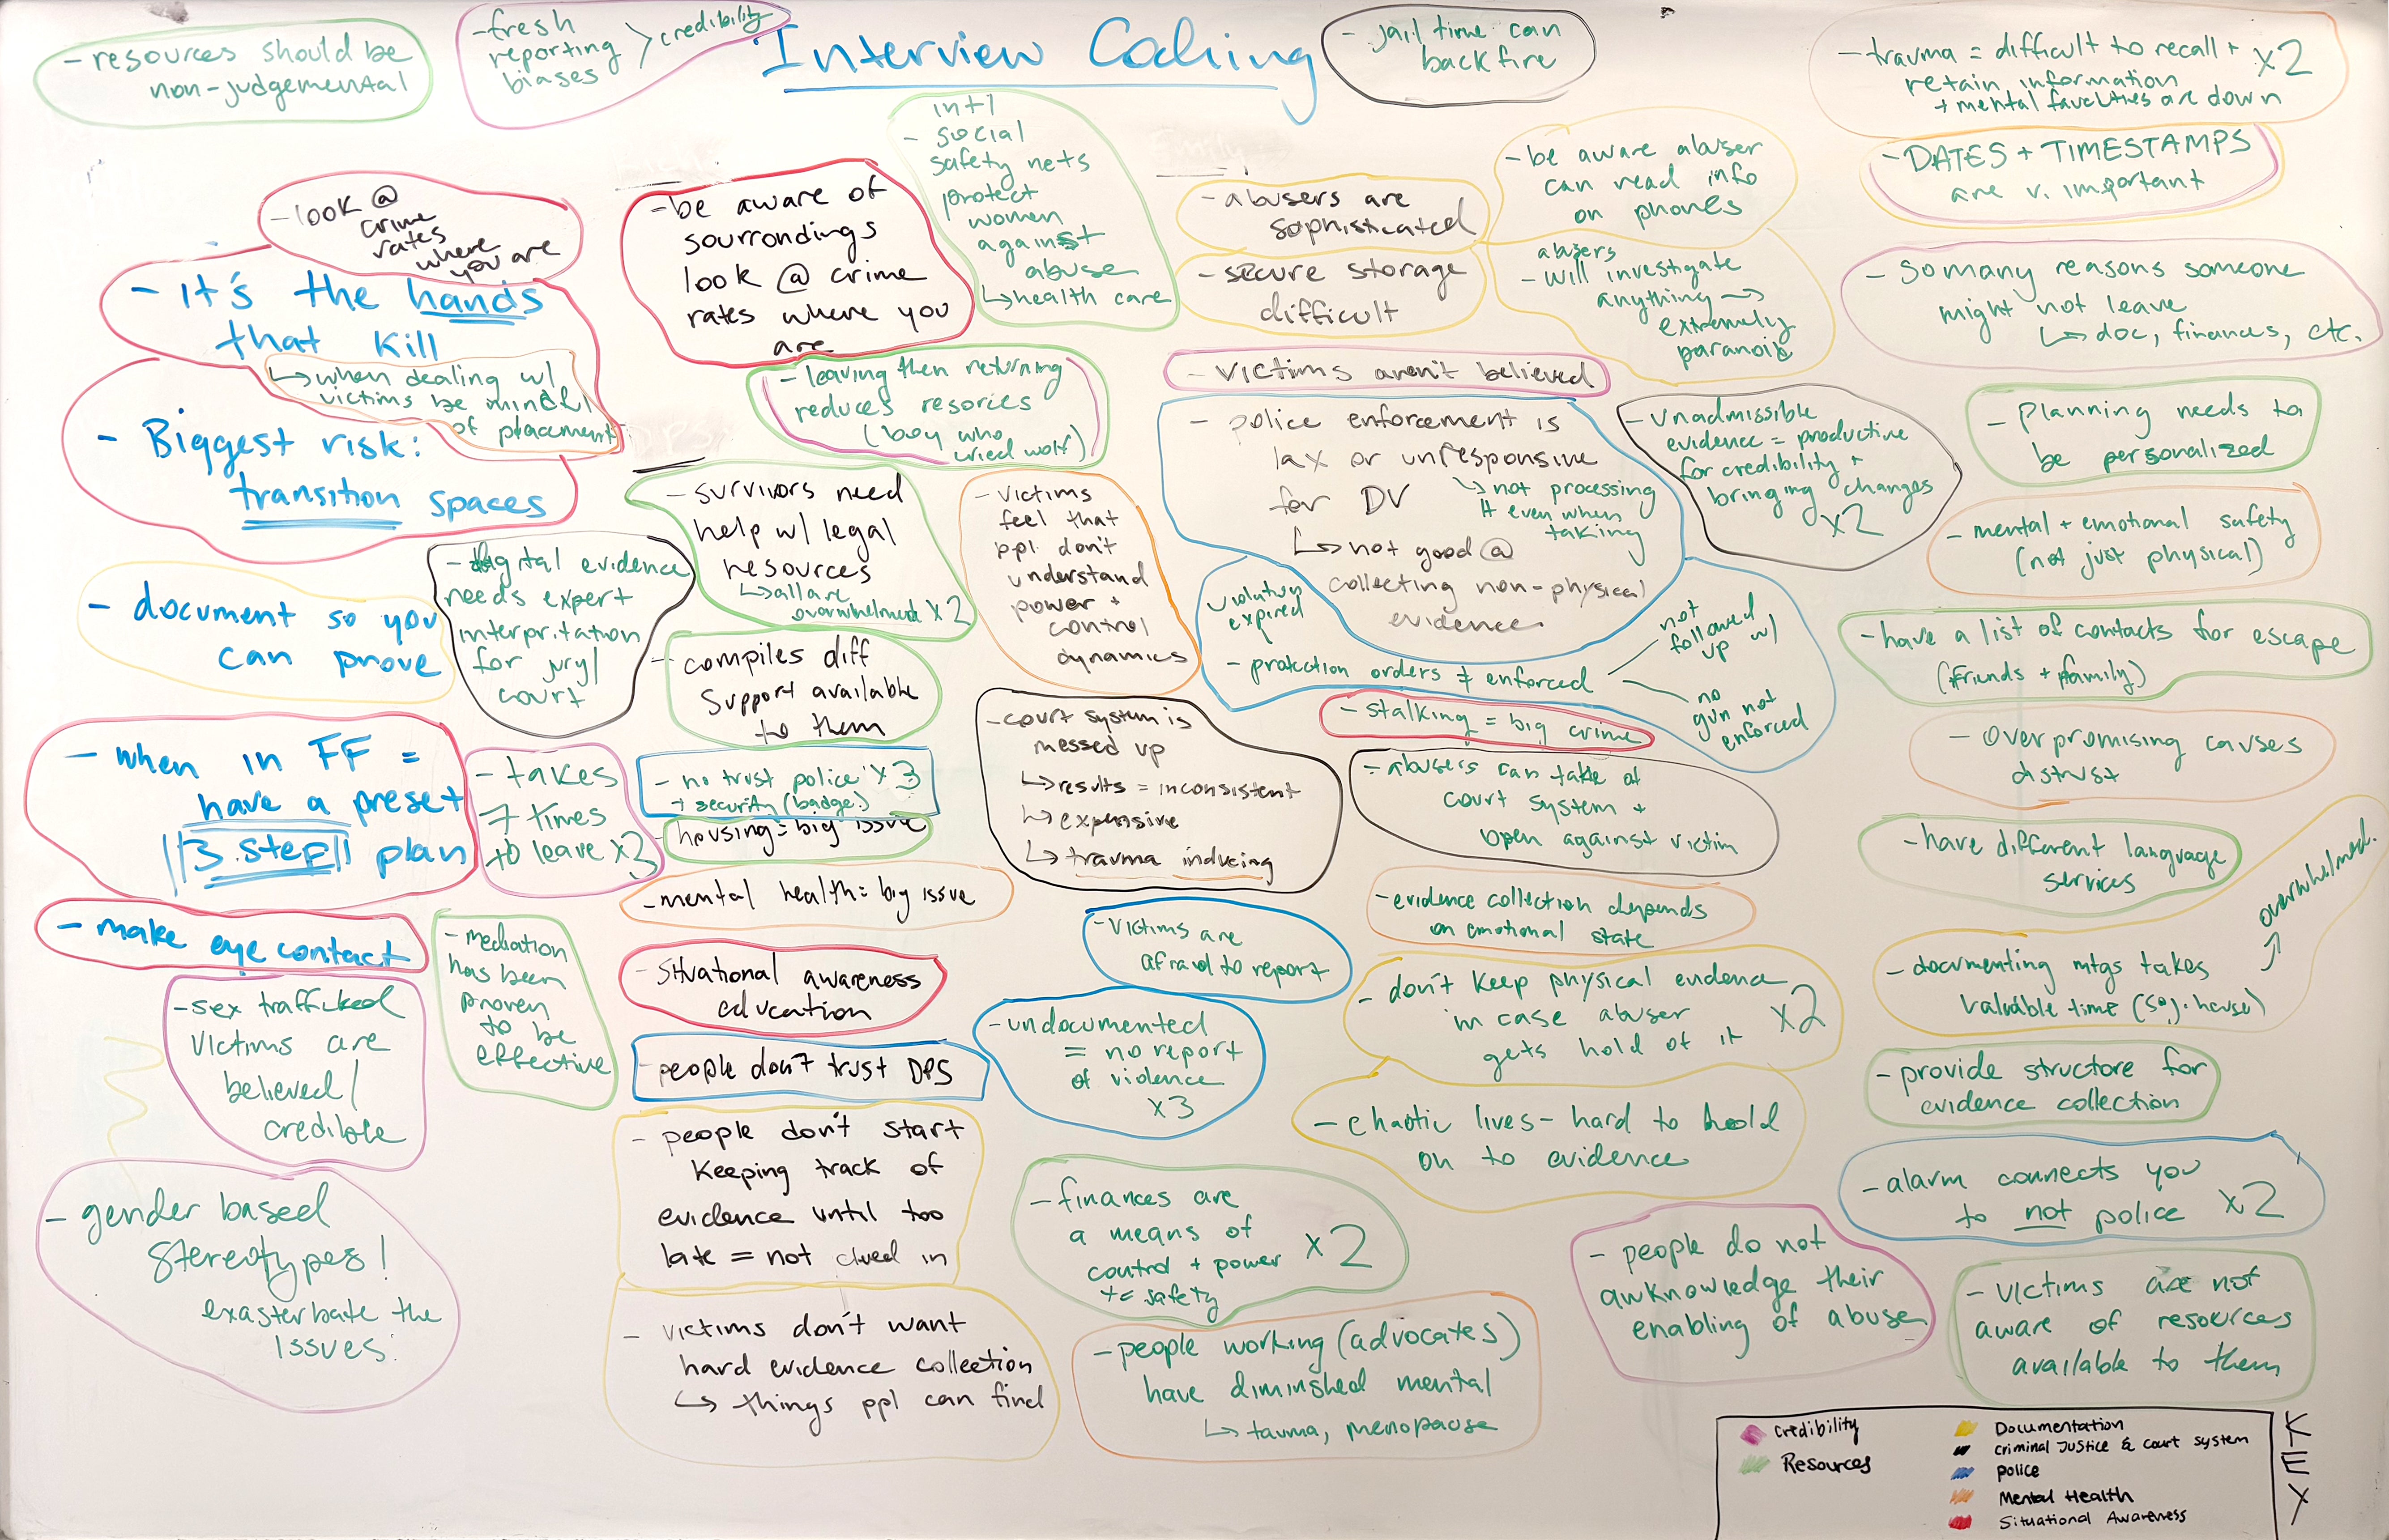 Interview Coding
- resources should be
non-judgemental
- fresh
reporting
biases
> credibility
- jail time can
backfire
- trauma = difficult to recall +
retain information
+ mental faculties are down
x2
- DATES + TIMESTAMPS
are v. important
- look @
crime
rates
where
you are
- it's the hands
that kill
↳ when dealing w/
victims be mindful
of placement
- Biggest risk:
transition spaces
- document so you
can prove
- when in FF =
have a preset
||3 step|| plan
- make eye contact
- sex trafficked
victims are
believed/
credible
- gender based
stereotypes!
exasterbate the
issues.
- digital evidence
needs expert
interpritation
for jury/
court
- takes
7 times
to leave x3
- mediation
has been
proven
to be
effective
- be aware of
sourrondings
look @ crime
rates where you
are
int'l
- social
safety nets
protect
women
against
abuse
↳ health care
- leaving then returning
reduces resories
(boy who
cried wolf)
- survivors need
help w/ legal
resources
↳ all are
overwhelmed x2
- compiles diff
support available
to them
- no trust police x3
+ security (badge)
- housing = big issue
- mental health = big issue
- situational awareness
education
- people don't trust DPS
- people don't start
keeping track of
evidence until too
late = not clued in
- victims don't want
hard evidence collection
↳ things ppl can find
- victims
feel that
ppl don't
understand
power +
control
dynamics
- court system is
messed up
↳ results = inconsistent
↳ expensive
↳ trauma inducing
- victims are
afraid to report
- undocumented
= no report
of violence
x3
- finances are
a means of
control + power
+= safety
x2
- people working (advocates)
have diminished mental
↳ tauma, menopause
- abusers are
sophisticated
- secure storage
difficult
- be aware abuser
can read info
on phones
abusers
- will investigate
anything →
extremely
paranoid
- victims aren't believed
- police enforcement is
lax or unresponsive
for DV
↳ not processing
it even when
taking
↳ not good @
collecting non-physical
evidence
violation
expired
- protction orders ≠ enforced
not
followed
up w/
no
gun not
enforced
- stalking = big crime
- abusers can take at
court system +
open against victim
- evidence collection depends
on emotional state
- don't keep physical evidence
in case abuser
gets hold of it
x2
- chaotic lives - hard to hold
on to evidence
- people do not
awknowledge their
enabling of abuse
- unadmissible
evidence = productive
for credibility +
bringing changes
x2
- so many reasons someone
might not leave
↳ doc, finances, etc.
- planning needs to
be personalized
- mental + emotional safety
(not just physical)
- have a list of contacts for escape
(friends + family)
- overpromising causes
distrust
- have different language
services
- documenting mtgs takes
valuable time
→ overwhelmed.
- provide structore for
evidence collection
- alarm connects you
to not police x2
- victims are not
aware of resources
available to them
KEY
Credibility
Resources
Documentation
Criminal Justice & Court System
police
Mental Health
Situational Awareness